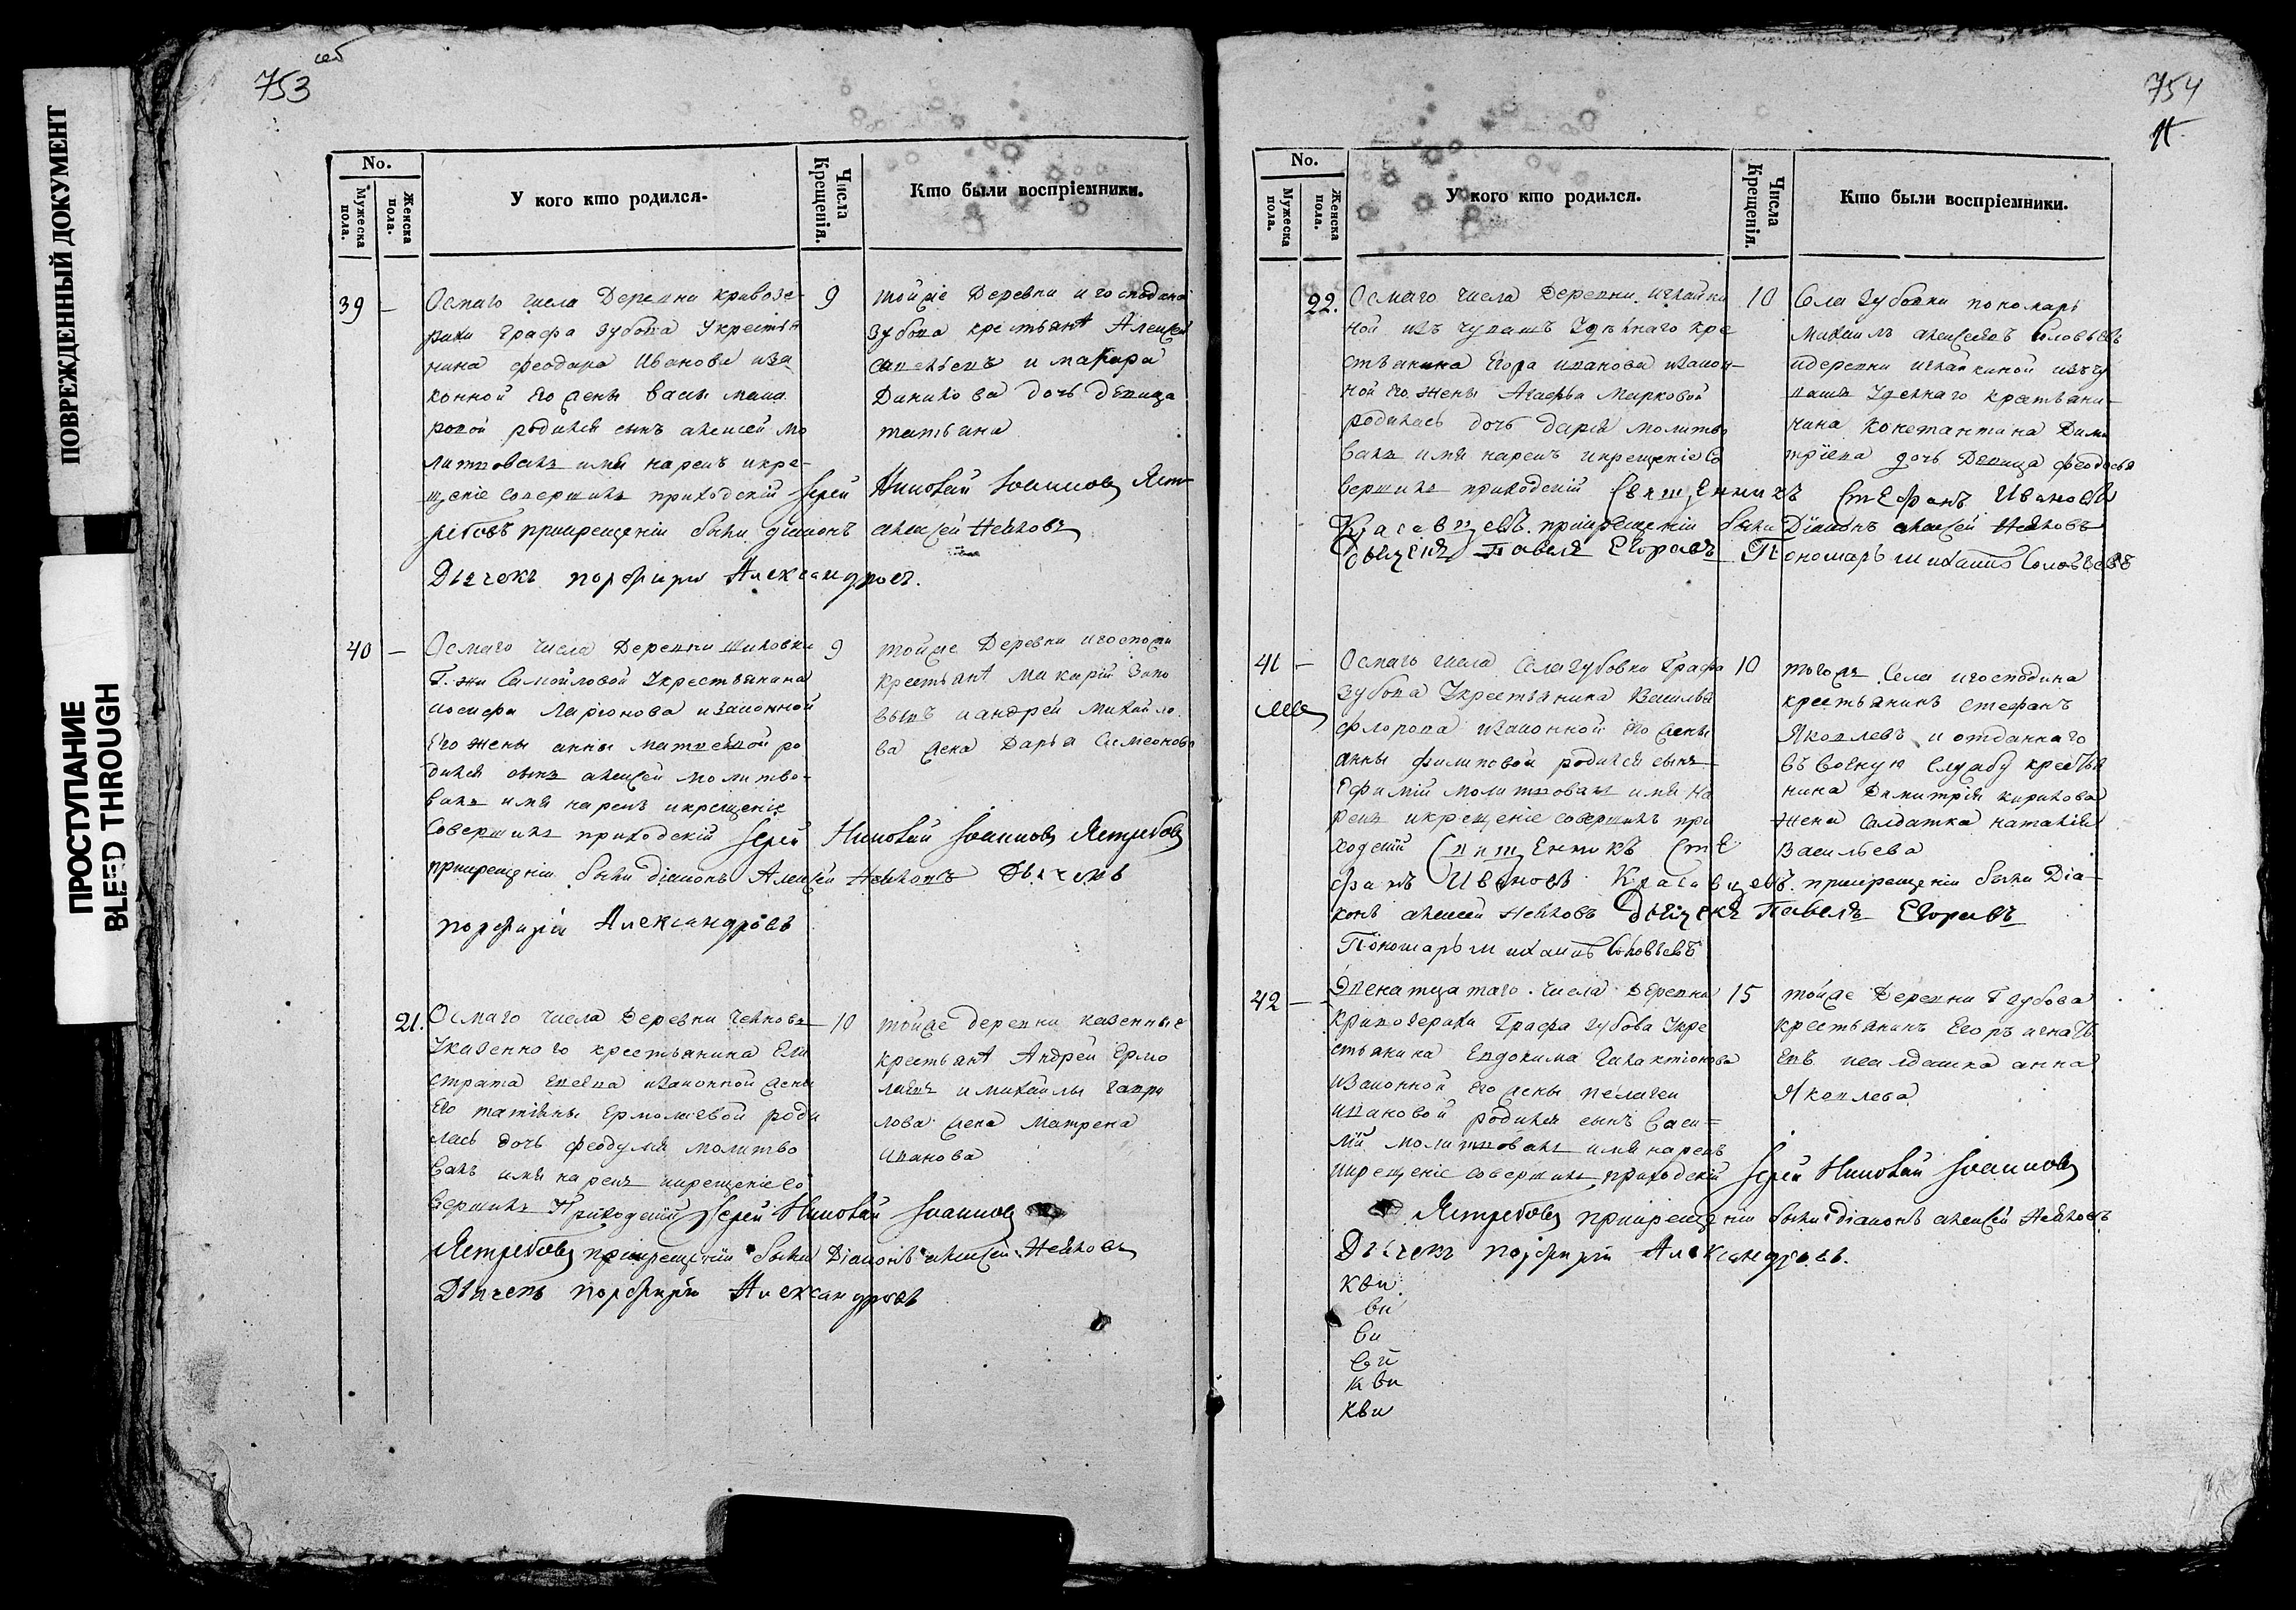 ПОВРЕЖДЕННЫЙ ДОКУМЕНТ
ПРОСТУПАНИЕ
BLEED THROUGH
753
No.
Мужеска пола.
Женска пола.
У кого кто родился.
Числа Крещенія.
Кто были воспріемники.
39 — Осмаго числа Деревни кривозе-
рихи графа Зубова Укрестья
нина феодора Иванова иза
конной Его жены Васы
родился сынъ алексей мо
литвовалъ имя наречъ икре-
щеніе совершилъ приходскій Іерей Николай Іоанновъ Яст
ребовъ прикрещеніи были діаконъ алексей Нейковъ
Дьячекъ порфирій Александровъ.
9
тойже Деревни игосподина
Зубова крестьяне Алексей
и макара
Данилова дочь девица
татьяна
40 — Осмаго числа Деревни шиховки
Г. жи Самойловой Укрестьянина
иосифа Ларіонова изаконной
Его жены анны матвеевой ро
дился сынъ алексей молитво-
валъ имя наречъ икрещеніе
Совершилъ приходскій Іерей Николай Іоанновъ Ястребовъ
прикрещеніи были діаконъ Алексей Нейковъ Дьячекъ
порфирій Александровъ
9
тойже Деревни игоспожи
крестьяне Макарій
и андрей Михайло
ва жена Дарья Симеонова
21. Осмаго числа Деревни
Указенного крестьянина Ели
страта изаконной жены
Его татіяны Ермолаевой роди
лась дочь феодулия молитво
валъ имя наречъ икрещеніе со
вершилъ Приходскій Іерей Николай Іоанновъ
Ястребовъ прикрещеніи были Діаконъ алексей Нейковъ
Дьячекъ порфирій Александровъ
10
тойже деревни казенные
крестьяне Андрей Ермо
лаевъ и михайлы гаври
лова жена Матрена
иванова
754
No.
Мужеска пола.
Женска пола.
У кого кто родился.
Числа Крещенія.
Кто были воспріемники.
22. Осмаго числа Деревни
ной изъ чувашъ Удельнаго кре
стьянина Егора иванова изакон-
ной Его жены Агафьи Марковой
родилась дочь дарья молитво
валъ имя наречъ икрещеніе со
вершилъ приходскій Священникъ Стефанъ Ивановъ
Красавцевъ. прикрещеніи были Діаконъ алексей Нейковъ
Дьячекъ Павелъ Егоровъ Пономарь михаилъ Соловьевъ
10
Села Зубовки пономарь
михаилъ алексеевъ Соловьевъ
идеревни изъ чу
вашъ Удельнаго крестьяни-
нина Константина Дими
тріева дочь Девица феодосья
41 — Осмаго числа Села Зубовки Графа
Зубова Укрестьянина Василья
флорова изаконной Его жены
анны филиповой родился сынъ
Ефимій молитвовалъ имя на
речъ икрещеніе совершилъ при
ходскій Священникъ Сте
фанъ Ивановъ Красавцевъ. прикрещеніи были Діа-
конъ алексей Нейковъ Дьячекъ Павелъ Егоровъ
Пономарь михаилъ Соловьевъ
10
тогожъ Села игосподина
крестьянинъ стефанъ
Яковлевъ и отданнаго
въ военую Службу крестья
нина Димитрія кирилова
жена Салдатка наталія
Васильева
42 — Числа деревни
кривозерихи Графа Зубова Укре
стьянина Евдокима Галактіонова
изаконной Его жены пелагеи
ивановой родился сынъ Васи=
лій молитвовалъ имя наречъ
икрещеніе совершилъ приходскій Іерей Николай Іоанновъ
Ястребовъ прикрещеніи были діаконъ алексей Нейковъ
Дьячекъ порфирій Александровъ.
15
тойже Деревни Г Зубова
крестьянинъ Егоръ игнать
евъ исалдашка анна
Яковлева
кви
ви
ви
ви
кви
кви